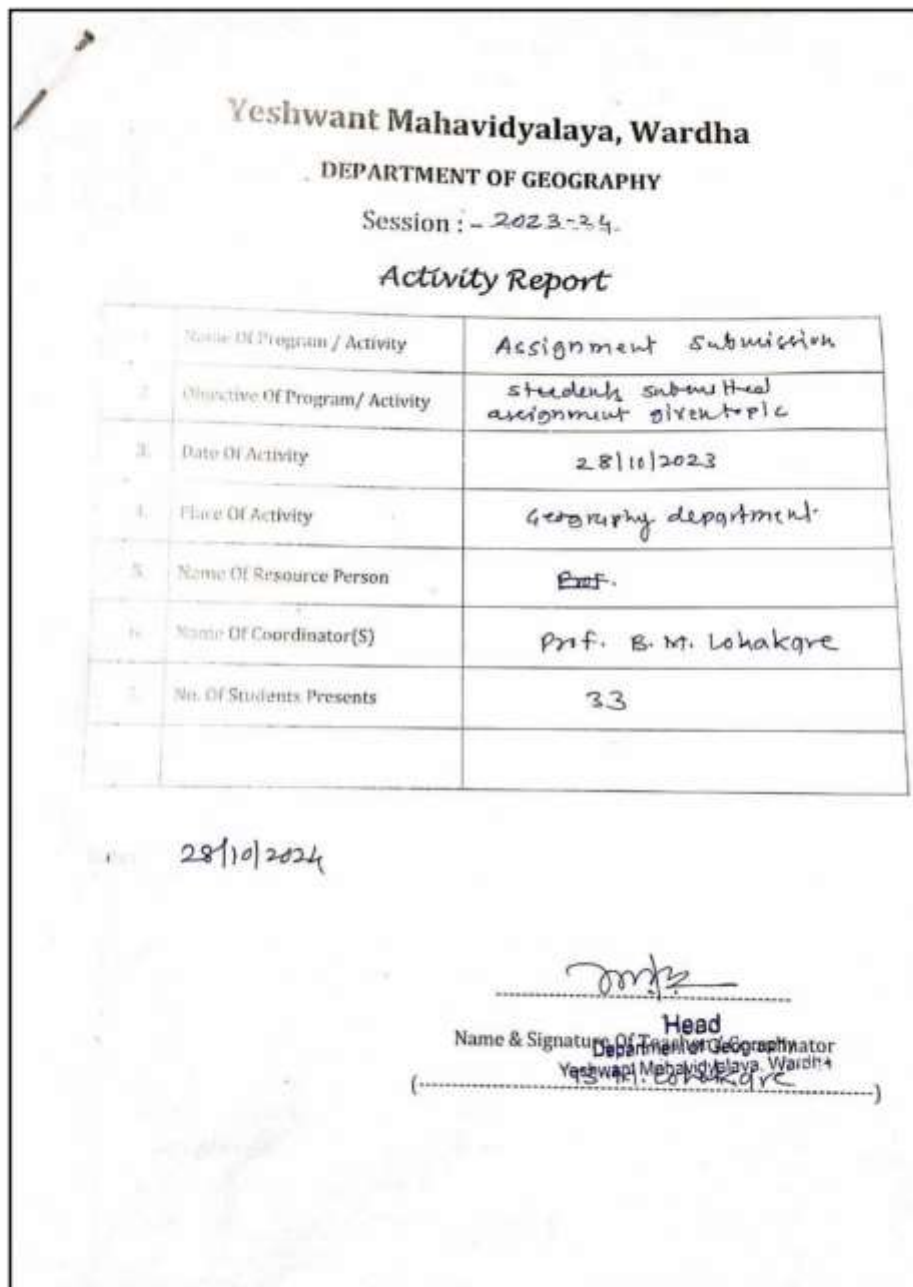 Yeshwant Mahavidyalaya, Wardha
DEPARTMENT OF GEOGRAPHY
Session : - 2023-24.
Activity Report
Name Of Program / Activity Assignment submission
2. Objective Of Program/ Activity students submitted
assignment given topic
3. Date Of Activity 28/10/2023
4. Place Of Activity Geography department.
5. Name Of Resource Person Prof.
6. Name Of Coordinator(S) Prof. B. M. Lohakare
7. No. Of Students Presents 33
28/10/2024
Head
Name & Signature Of Teacher
Department of Geography
Yeshwant Mahavidyalaya, Wardha
B. M. Lohakare